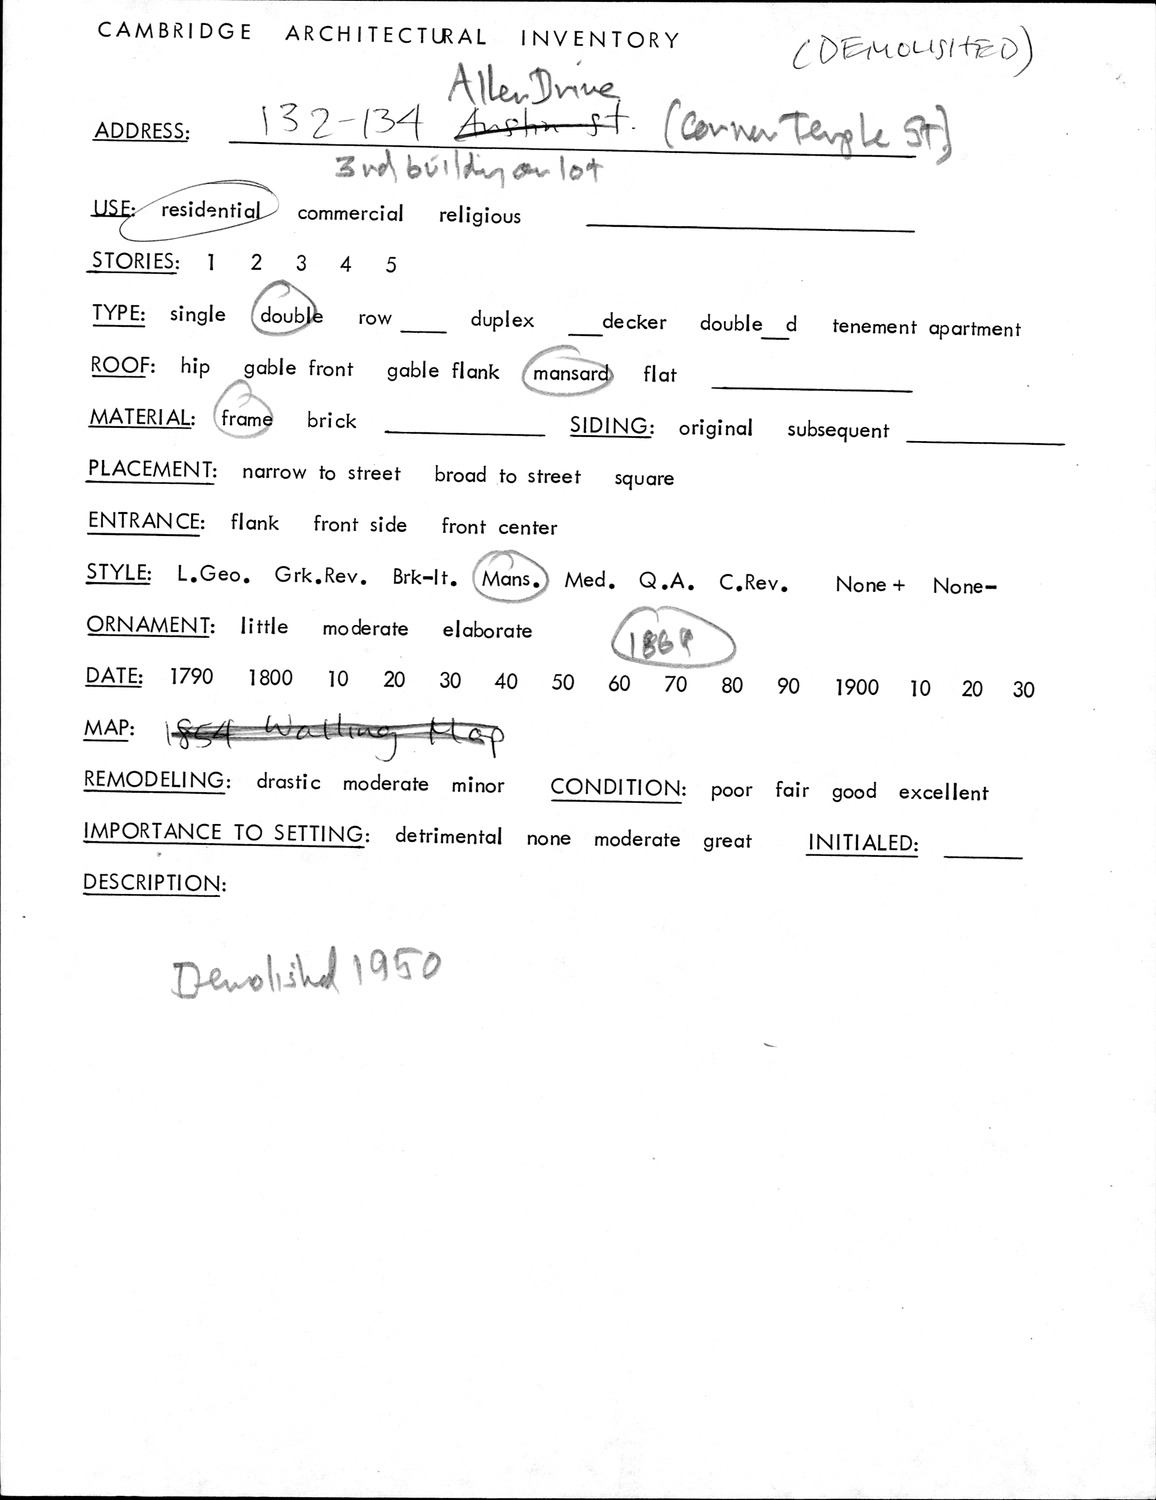 CAMBRIDGE ARCHITECTURAL INVENTORY
(DEMOLISHED)
Allen Drive
ADDRESS: 132-134 Austin St. (Corner Temple St)
3rd building on lot
USE: residential commercial religious
STORIES: 1 2 3 4 5
TYPE: single double row ___ duplex ___decker double__d tenement apartment
ROOF: hip gable front gable flank mansard flat
MATERIAL: frame brick ___ SIDING: original subsequent ___
PLACEMENT: narrow to street broad to street square
ENTRANCE: flank front side front center
STYLE: L.Geo. Grk.Rev. Brk-It. Mans. Med. Q.A. C.Rev. None+ None-
ORNAMENT: little moderate elaborate 1869
DATE: 1790 1800 10 20 30 40 50 60 70 80 90 1900 10 20 30
MAP: 1854 Walling Map
REMODELING: drastic moderate minor CONDITION: poor fair good excellent
IMPORTANCE TO SETTING: detrimental none moderate great INITIALED: ___
DESCRIPTION:
Demolished 1950